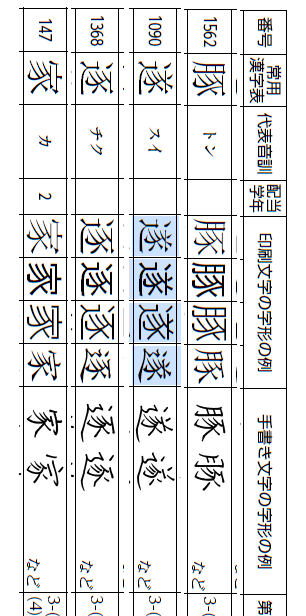 番号 常用漢字表 代表音訓 配当学年 印刷文字の字形の例 手書き文字の字形の例 第
1562 豚 トン 豚 豚 豚 豚 豚 豚
1090 遂 スイ 遂 遂 遂 遂 遂 遂 など 3-(
1368 逐 チク 逐 逐 逐 逐 逐 逐 など 3-(
147 家 カ 2 家 家 家 家 家 家 など 3-( (4)